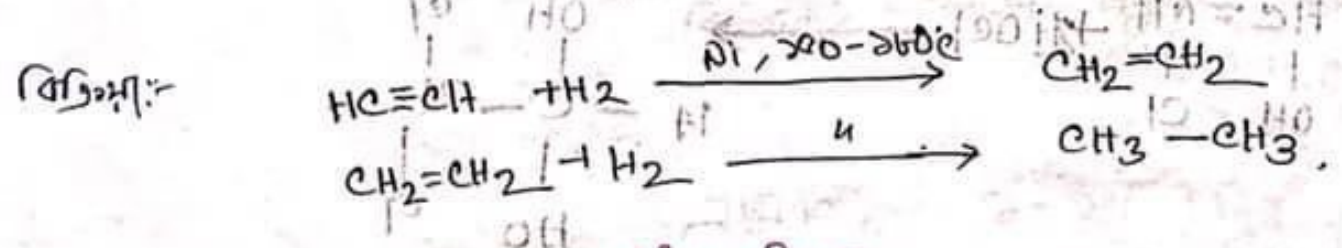 বিক্রিয়া:- HC≡CH + H2 —Ni, ১৫০-২৬০°C→ CH2=CH2
CH2=CH2 + H2 —"→ CH3-CH3.